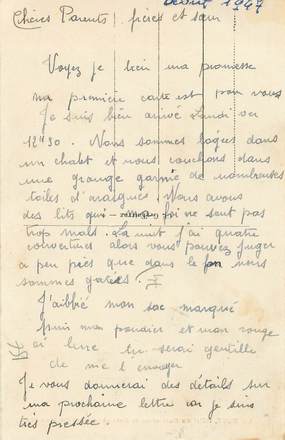 Début 1947
Chères Parents, frères et sœur
Voyez je tien ma promesse
ma première carte est pour vous
Je suis bien arrivé Lundi soir
12H30. Nous sommes logées dans
un chalet et nous couchons dans
une grange garnie de nombreuses
toiles d'araignées. Nous avons
des lits qui ma foi ne sont pas
trop mals. La nuit j'ai quatre
couvertures alors vous pouvez juger
a peu près que dans le fon nous
sommes gatées.
J'ai oublié mon sac marqué
puis mon poudrier et mon rouge
a lèvre tu serai gentille
de me l'envoyer
Je vous donnerai des détails sur
ma prochaine lettre car je suis
très pressée.